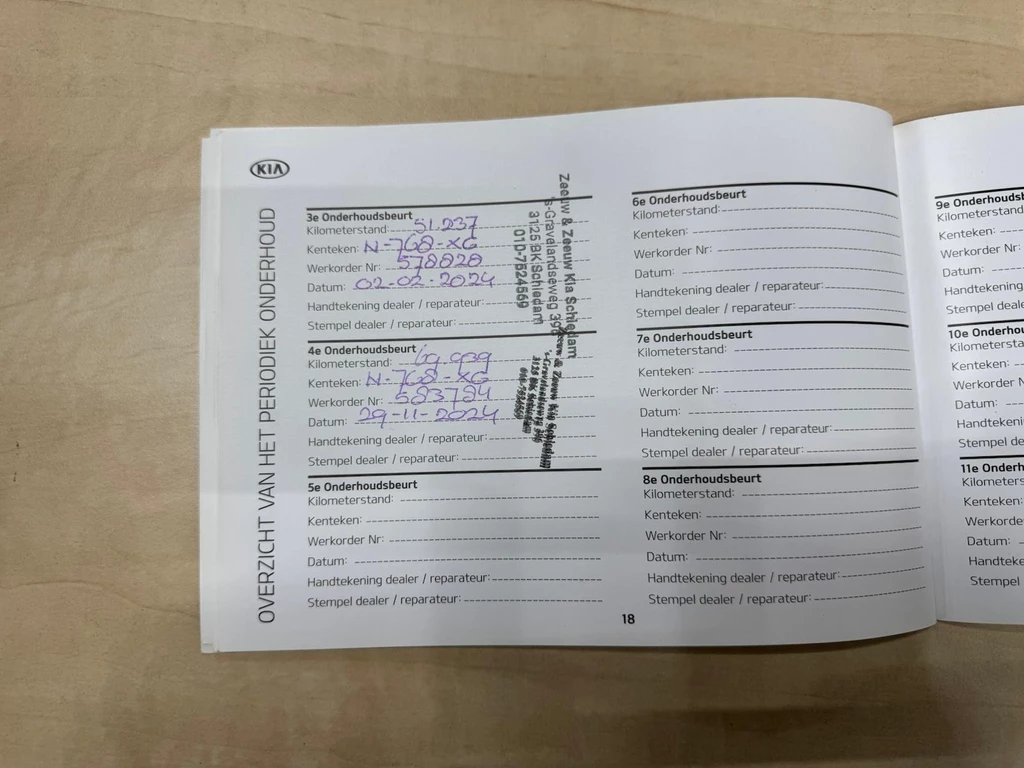 KIA
OVERZICHT VAN HET PERIODIEK ONDERHOUD
3e Onderhoudsbeurt
Kilometerstand: 51.237
Kenteken: N-768-XG
Werkorder Nr: 578828
Datum: 02-02-2024
Handtekening dealer / reparateur:
Stempel dealer / reparateur:
Zeeuw & Zeeuw Kia Schiedam
's-Gravelandseweg
3125 BK Schiedam
010-7524569
4e Onderhoudsbeurt
Kilometerstand: 69.939
Kenteken: N-768-XG
Werkorder Nr: 583784
Datum: 29-11-2024
Handtekening dealer / reparateur:
Stempel dealer / reparateur:
Zeeuw & Zeeuw Kia Schiedam
5e Onderhoudsbeurt
Kilometerstand:
Kenteken:
Werkorder Nr:
Datum:
Handtekening dealer / reparateur:
Stempel dealer / reparateur:
6e Onderhoudsbeurt
Kilometerstand:
Kenteken:
Werkorder Nr:
Datum:
Handtekening dealer / reparateur:
Stempel dealer / reparateur:
7e Onderhoudsbeurt
Kilometerstand:
Kenteken:
Werkorder Nr:
Datum:
Handtekening dealer / reparateur:
Stempel dealer / reparateur:
8e Onderhoudsbeurt
Kilometerstand:
Kenteken:
Werkorder Nr:
Datum:
Handtekening dealer / reparateur:
Stempel dealer / reparateur:
18
9e Onderhoudsb
Kilometerstand
Kenteken:
Werkorder Nr:
Datum:
Handtekening
Stempel deale
10e Onderhou
Kilometersta
Kenteken:
Werkorder N
Datum:
Handtekeni
Stempel de
11e Onderh
Kilometers
Kenteken:
Werkorde
Datum:
Handteke
Stempel